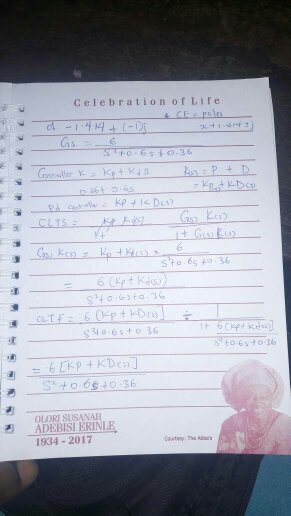 Celebration of Life
* CE = poles
of -1.414 + (-1)j
Gs = 6
S²+0.6s+0.36
Controller K = Kp + Kd S
K(s) = P + D
0.36+ 0.6s
= Kp(s) + KD(s)
Pd controller = Kp + KD(s)
CLTS = Kp Kd(s)
G(s) K(s)
1+
1 + G(s) K(s)
G(s) K(s) = Kp + Kd(s) × 6
S²+0.6s+0.36
= 6 (Kp + Kd(s))
S²+0.6s+0.36
CLTF = 6 (Kp + KD(s)] ÷ 1
S²+0.6s+0.36
1+ 6[Kp+Kd(s)]
S²+0.6s+0.36
= 6 [Kp + KD(s)]
S² + 0.6s + 0.36
OLORI SUSANAH
ADEBISI ERINLE
1934 - 2017
Courtesy: The Adisa's